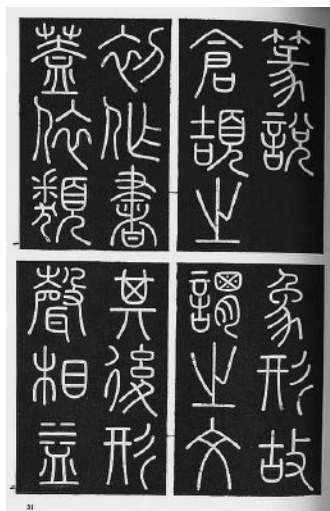 篆說
倉頡之
初作書
蓋依類
象形故
謂之文
其後形
聲相益
31